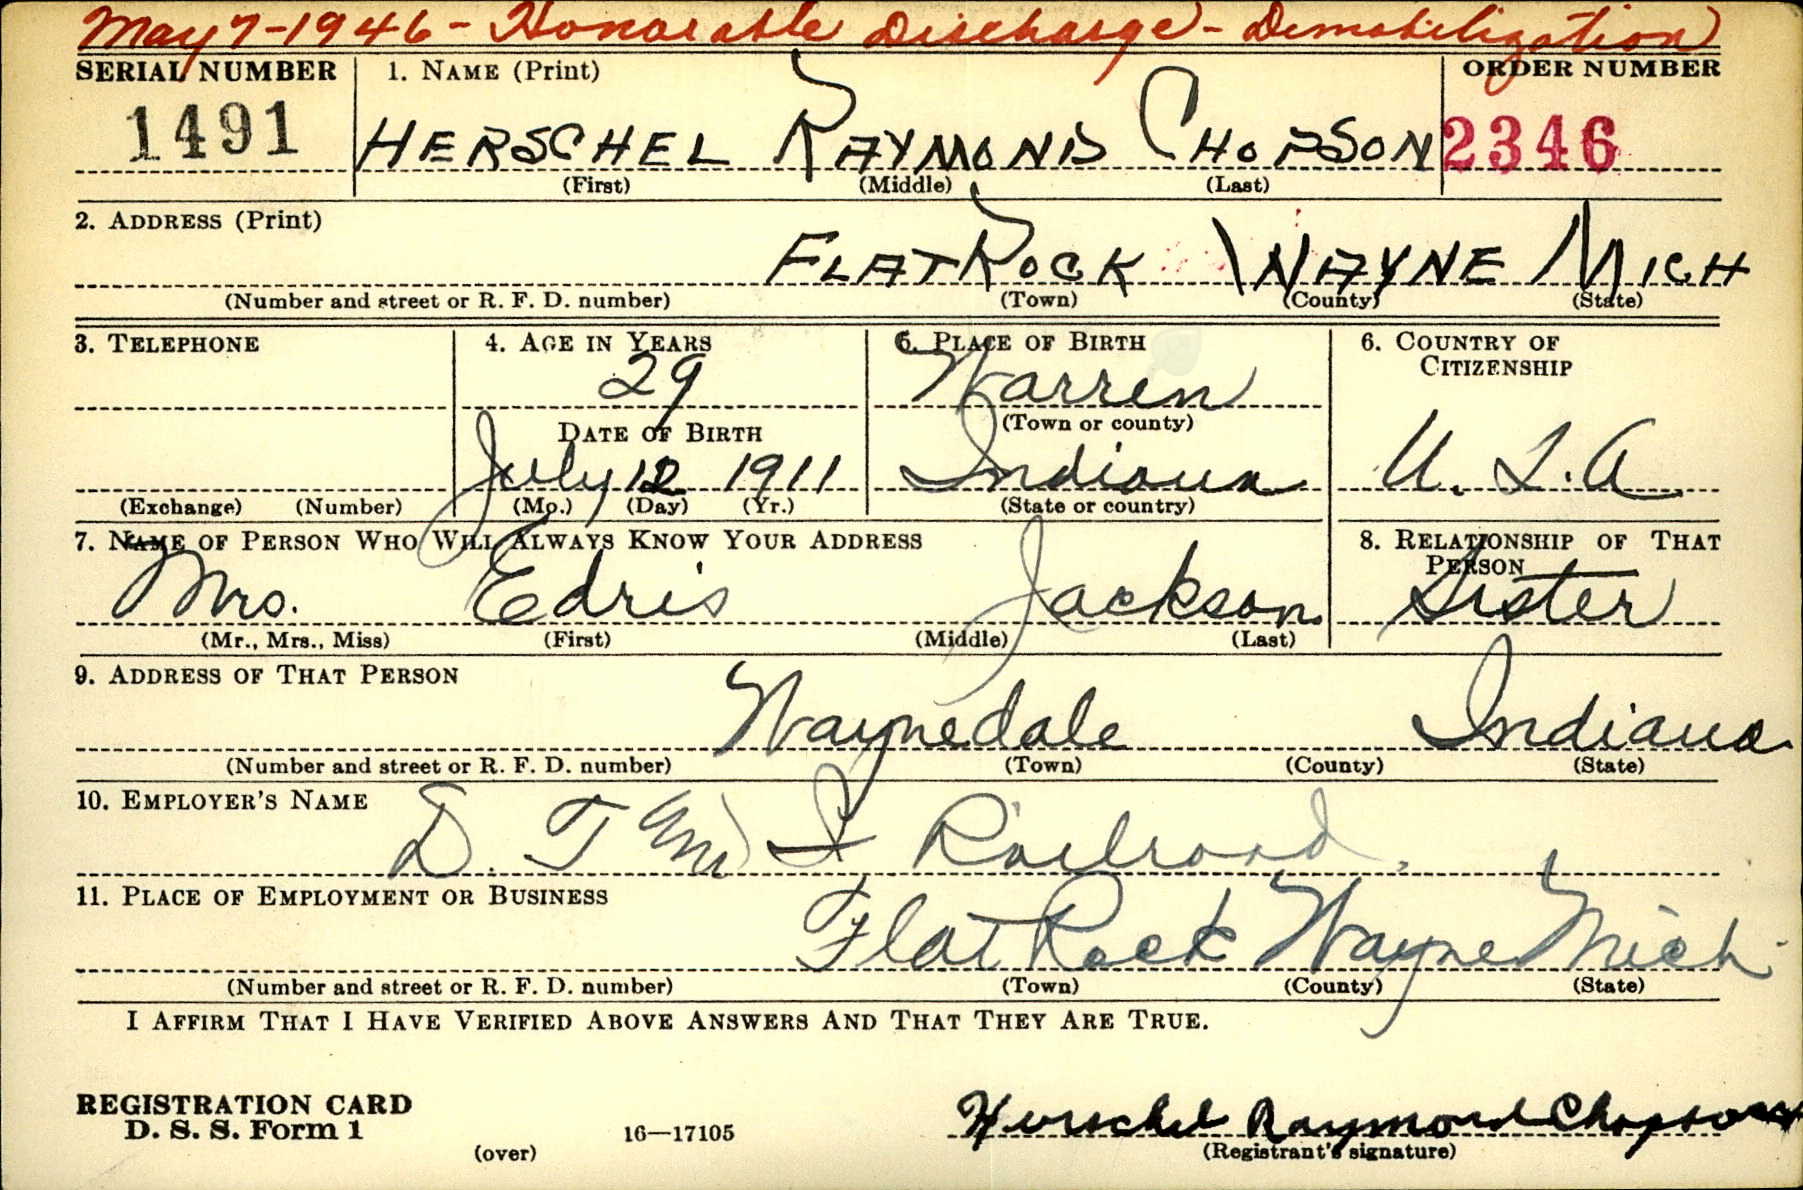 May 7-1946 - Honorable Discharge - Demobilization
SERIAL NUMBER 1. NAME (Print) ORDER NUMBER
1491 HERSCHEL RAYMOND CHOPSON 2346
(First) (Middle) (Last)
2. ADDRESS (Print)
FLAT ROCK WAYNE MICH
(Number and street or R. F. D. number) (Town) (County) (State)
3. TELEPHONE 4. AGE IN YEARS 5. PLACE OF BIRTH 6. COUNTRY OF
CITIZENSHIP
29 Warren
DATE OF BIRTH (Town or county)
July 12 1911 Indiana U. S. A
(Exchange) (Number) (Mo.) (Day) (Yr.) (State or country)
7. NAME OF PERSON WHO WILL ALWAYS KNOW YOUR ADDRESS 8. RELATIONSHIP OF THAT
PERSON
Mrs. Edris Jackson Sister
(Mr., Mrs., Miss) (First) (Middle) (Last)
9. ADDRESS OF THAT PERSON
Waynedale Indiana
(Number and street or R. F. D. number) (Town) (County) (State)
10. EMPLOYER'S NAME
D. T and I Railroad.
11. PLACE OF EMPLOYMENT OR BUSINESS
Flat Rock Wayne Mich.
(Number and street or R. F. D. number) (Town) (County) (State)
I AFFIRM THAT I HAVE VERIFIED ABOVE ANSWERS AND THAT THEY ARE TRUE.
REGISTRATION CARD
D. S. S. Form 1 16—17105 Herschel Raymond Chopson
(over) (Registrant's signature)